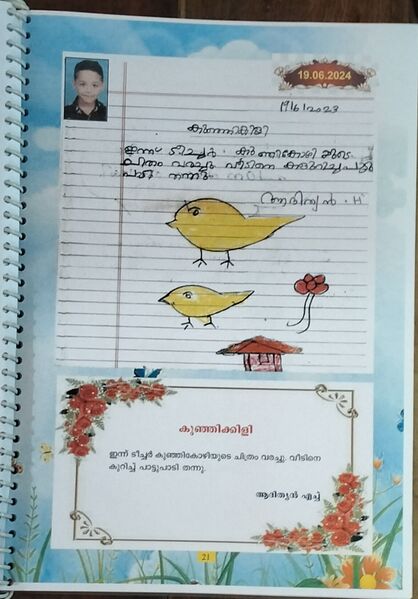 19.06.2024
19/6/2023
കുഞ്ഞിക്കിളി
ഇന്ന് ടീച്ചർ കുഞ്ഞികോഴിയുടെ
ചിത്രം വരച്ചു വീടിനെ
പാടി തന്നു
ആദിത്യൻ . H
കുഞ്ഞിക്കിളി
ഇന്ന് ടീച്ചർ കുഞ്ഞികോഴിയുടെ ചിത്രം വരച്ചു. വീടിനെ
കുറിച്ച് പാട്ടുപാടി തന്നു.
ആദിത്യൻ എച്ച്
21